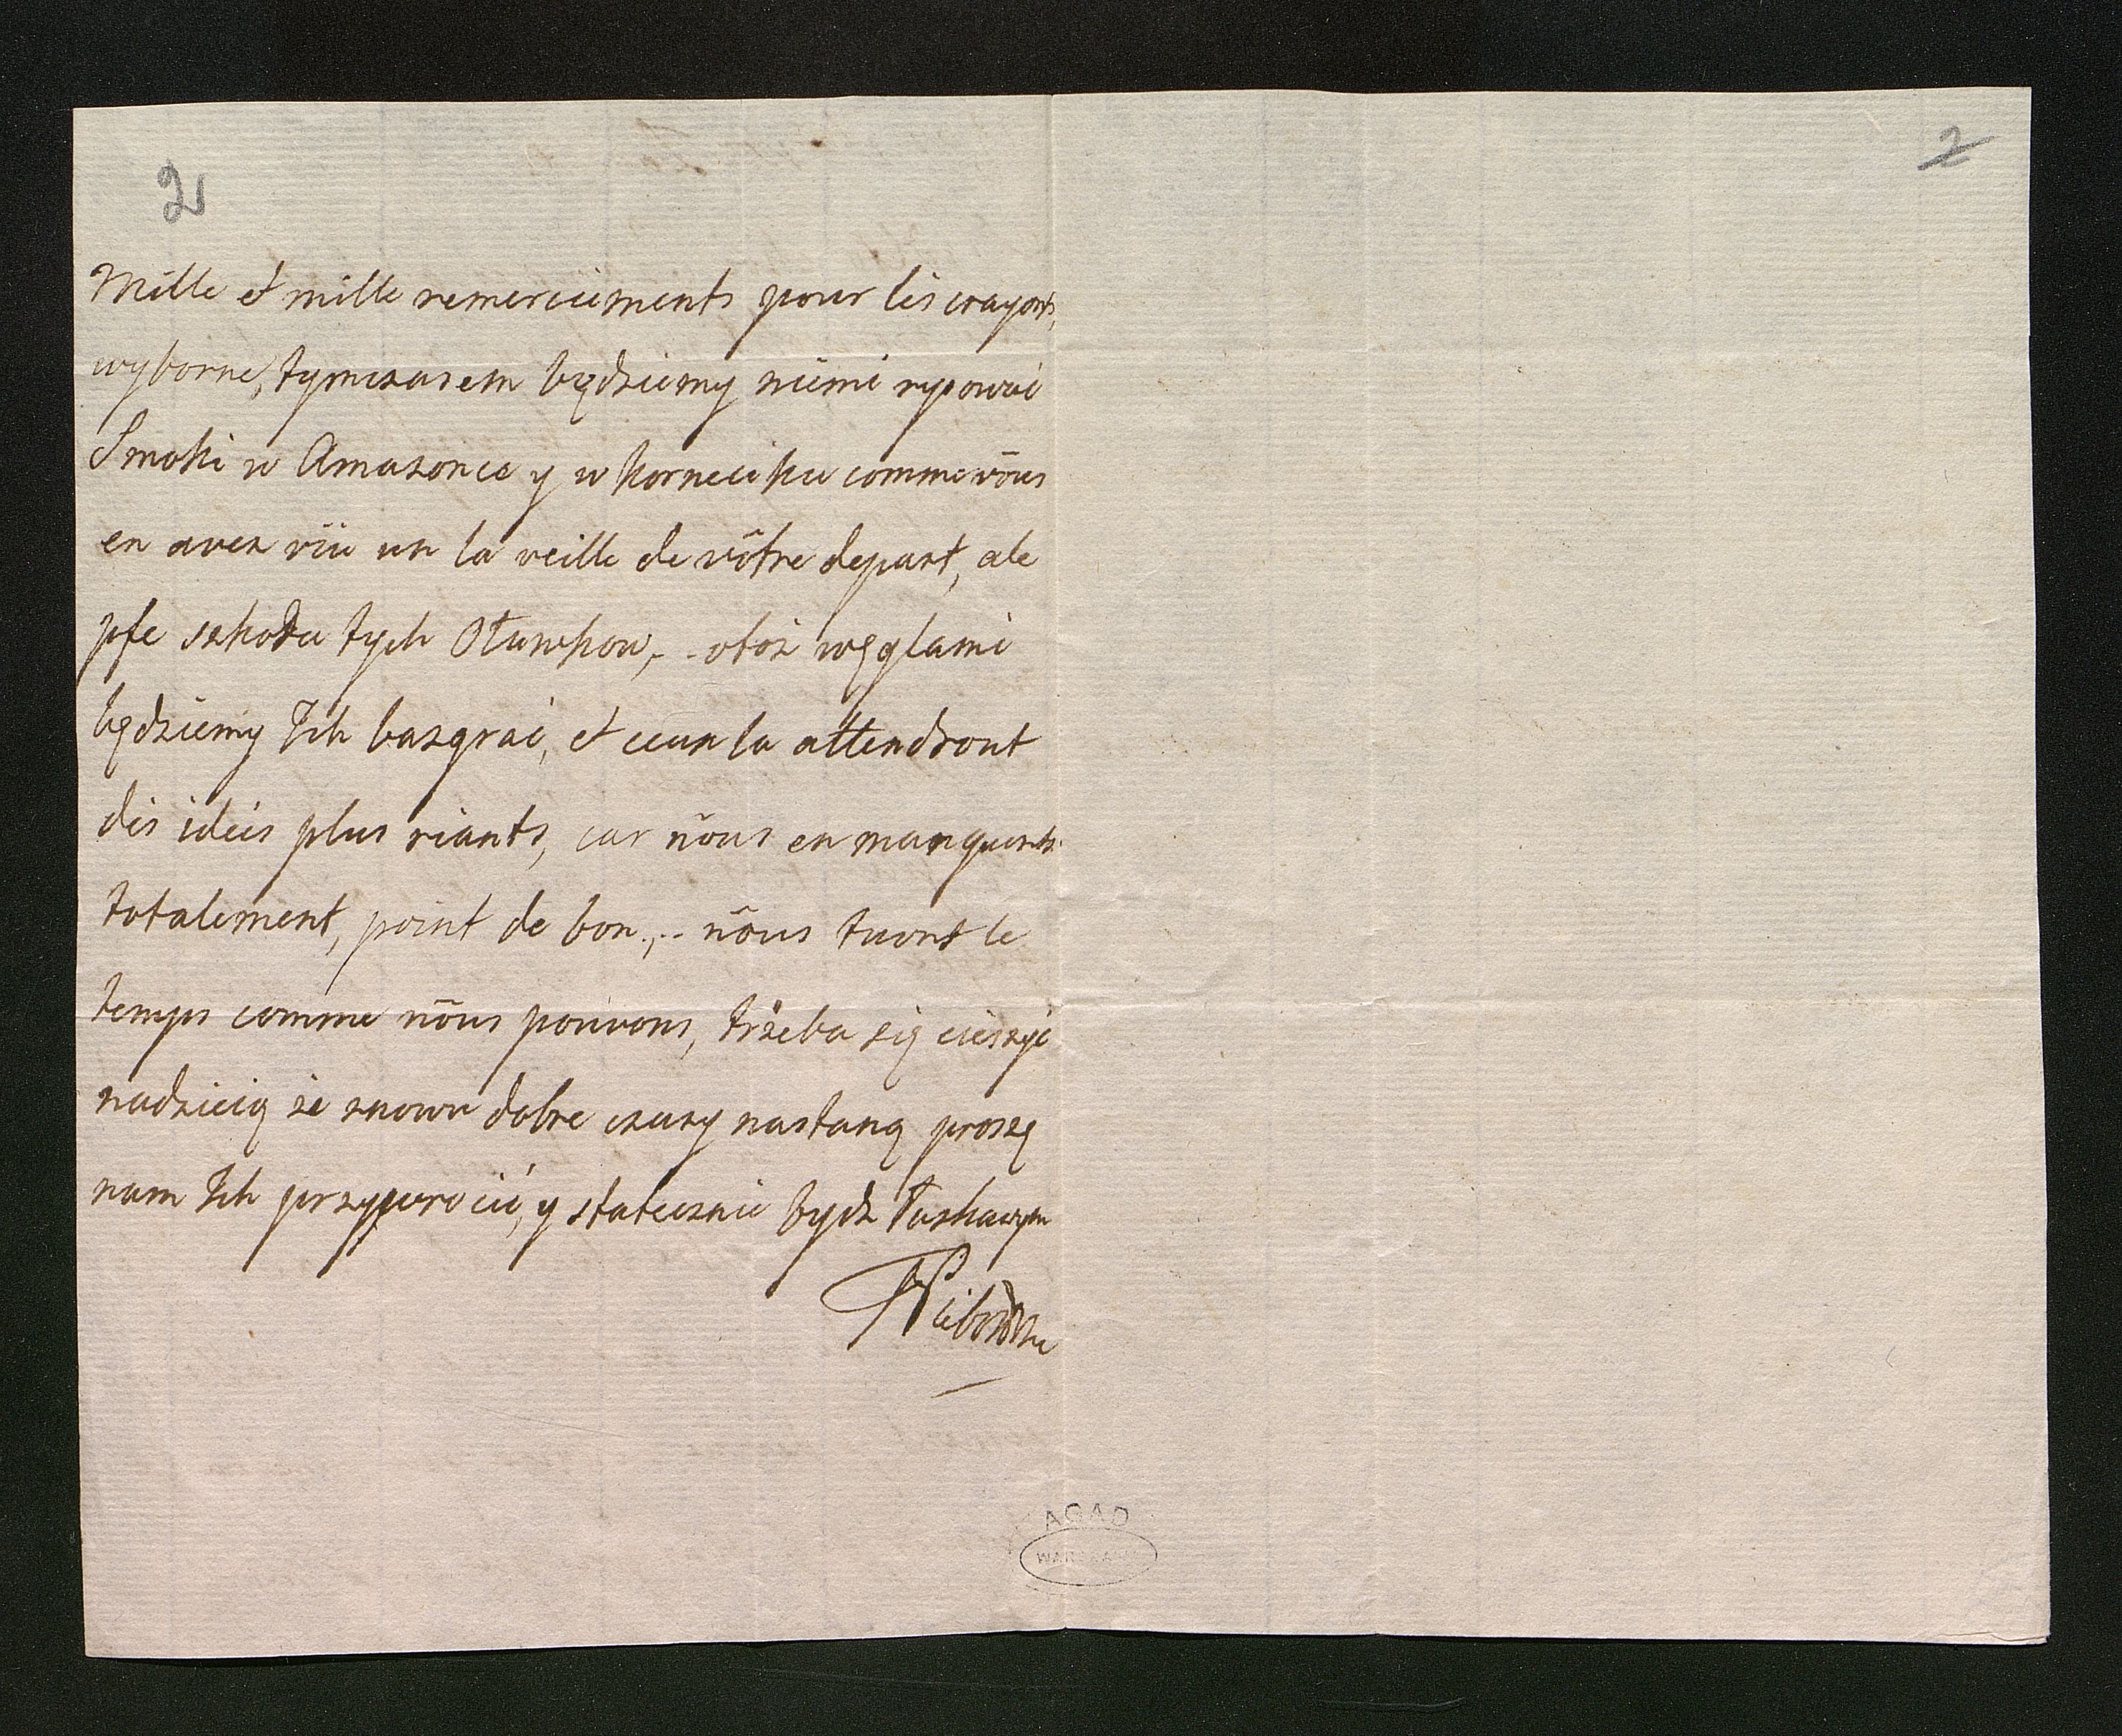 2
2
Mille et mille remerciements pour les crayons,
wyborne, tymczasem będziemy niemi rysować
Smoki w Amazonce y w korneciku comme võus
en avez vüu un la veille de vôtre depart, ale
pfe szkoda tych Ołuwkow, - - otoż węglami
będziemy Ich bazgrać, et ceux la attendront
des idées plus riants, car nõus en manquonts
totalement, point de bon.,.- nõus tuons le
temps comme nõus pouvons, trzeba się cieszyć
nadzieią że znowu dobre czasy nastaną proszę
nam Ich przywrocić, y statecznie bydz Łaskawym
AGAD
WARSZAWA